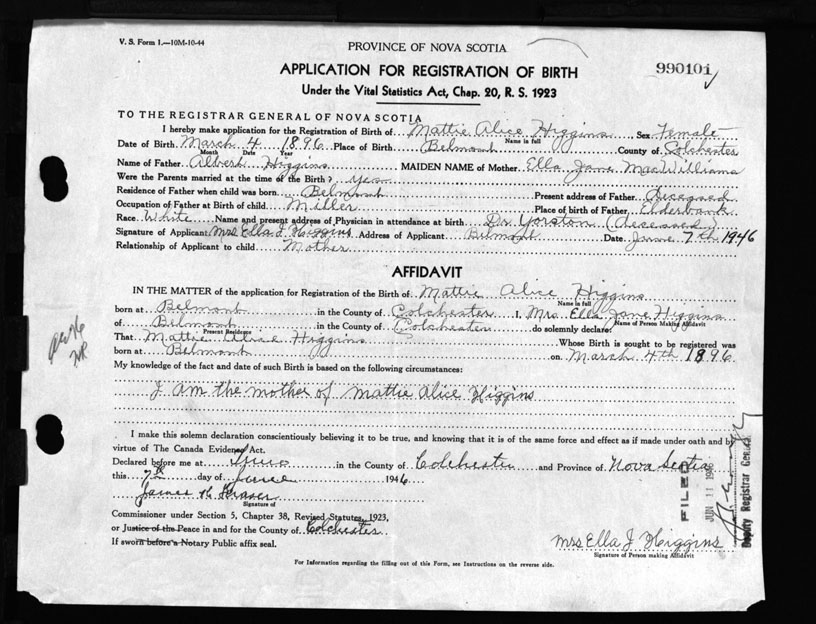 V. S. Form 1.—10M-10-44
PROVINCE OF NOVA SCOTIA
990101
APPLICATION FOR REGISTRATION OF BIRTH
Under the Vital Statistics Act, Chap. 20, R. S. 1923
TO THE REGISTRAR GENERAL OF NOVA SCOTIA
I hereby make application for the Registration of Birth of Mattie Alice Higgins, Sex Female
Name in full
Date of Birth March 4 1896 Place of Birth Belmont County of Colchester
Month Date Year
Name of Father Albert Higgins MAIDEN NAME of Mother Ella Jane MacWilliams
Were the Parents married at the time of the Birth? yes
Residence of Father when child was born Belmont Present address of Father deceased
Occupation of Father at Birth of child Miller Place of birth of Father Elderbank
Race White Name and present address of Physician in attendance at birth Dr Yorston (deceased)
Signature of Applicant Mrs Ella J Higgins Address of Applicant Belmont Date June 7th 1946
Relationship of Applicant to child Mother
AFFIDAVIT
IN THE MATTER of the application for Registration of the Birth of Mattie Alice Higgins
Name in full
born at Belmont in the County of Colchester I, Mrs. Ella Jane Higgins
Name of Person Making Affidavit
of Belmont in the County of Colchester do solemnly declare:
Present Residence
That Mattie Alice Higgins Whose Birth is sought to be registered was
born at Belmont on March 4th 1896
My knowledge of the fact and date of such Birth is based on the following circumstances:
I am the mother of Mattie Alice Higgins
I make this solemn declaration conscientiously believing it to be true, and knowing that it is of the same force and effect as if made under oath and by
virtue of The Canada Evidence Act.
Declared before me at Truro in the County of Colchester and Province of Nova Scotia
this 7th day of June 1946
James
Signature of
Commissioner under Section 5, Chapter 38, Revised Statutes, 1923,
or Justice of the Peace in and for the County of Colchester
If sworn before a Notary Public affix seal.
Mrs Ella J Higgins
Signature of Person making Affidavit
For Information regarding the filling out of this Form, see Instructions on the reverse side.
FILED
JUN 11 1946
Deputy Registrar General